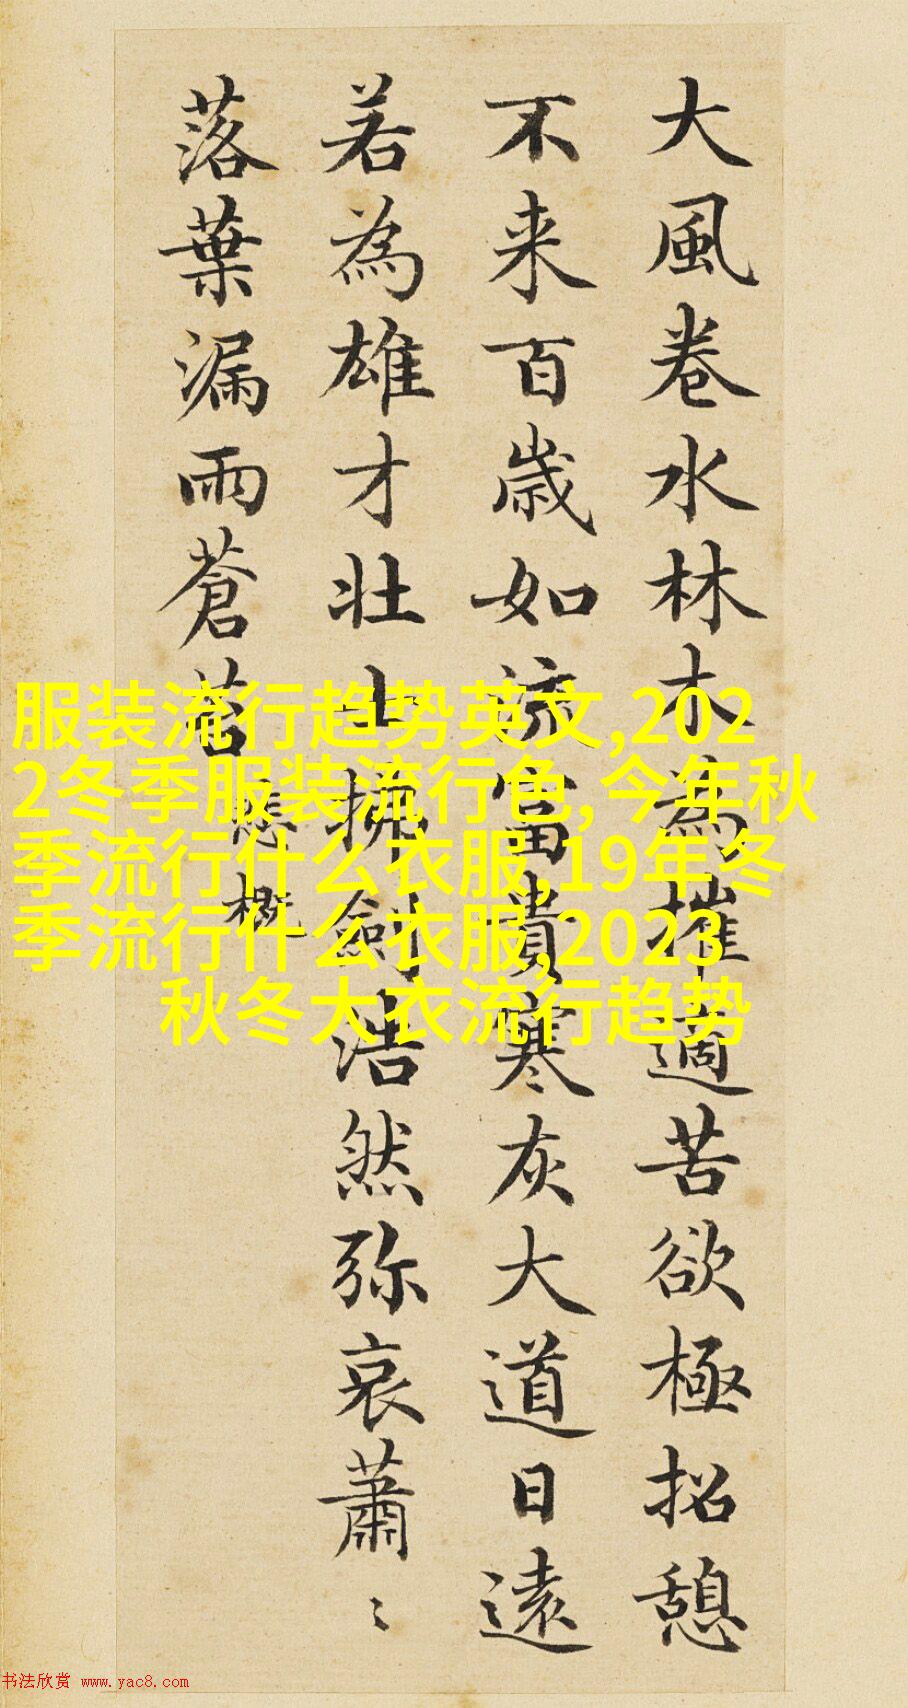 大風卷水林木為摧適苦欲極招憩
不来百歳如流富貴寒灰大道日遠
若為雄才壮士拂劍浩然弥哀蕭〻
落葉漏雨蒼苔
悲概
服装流行趋势英文,202
2冬季服装流行色,今年秋
季流行什么衣服,19年冬
季流行什么衣服,2023
秋冬大衣流行趋势
书法欣赏 www.yac8.com